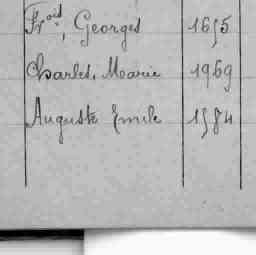 Frois, Georges 1655
Charles, Marie 1969
Auguste Emile 1584